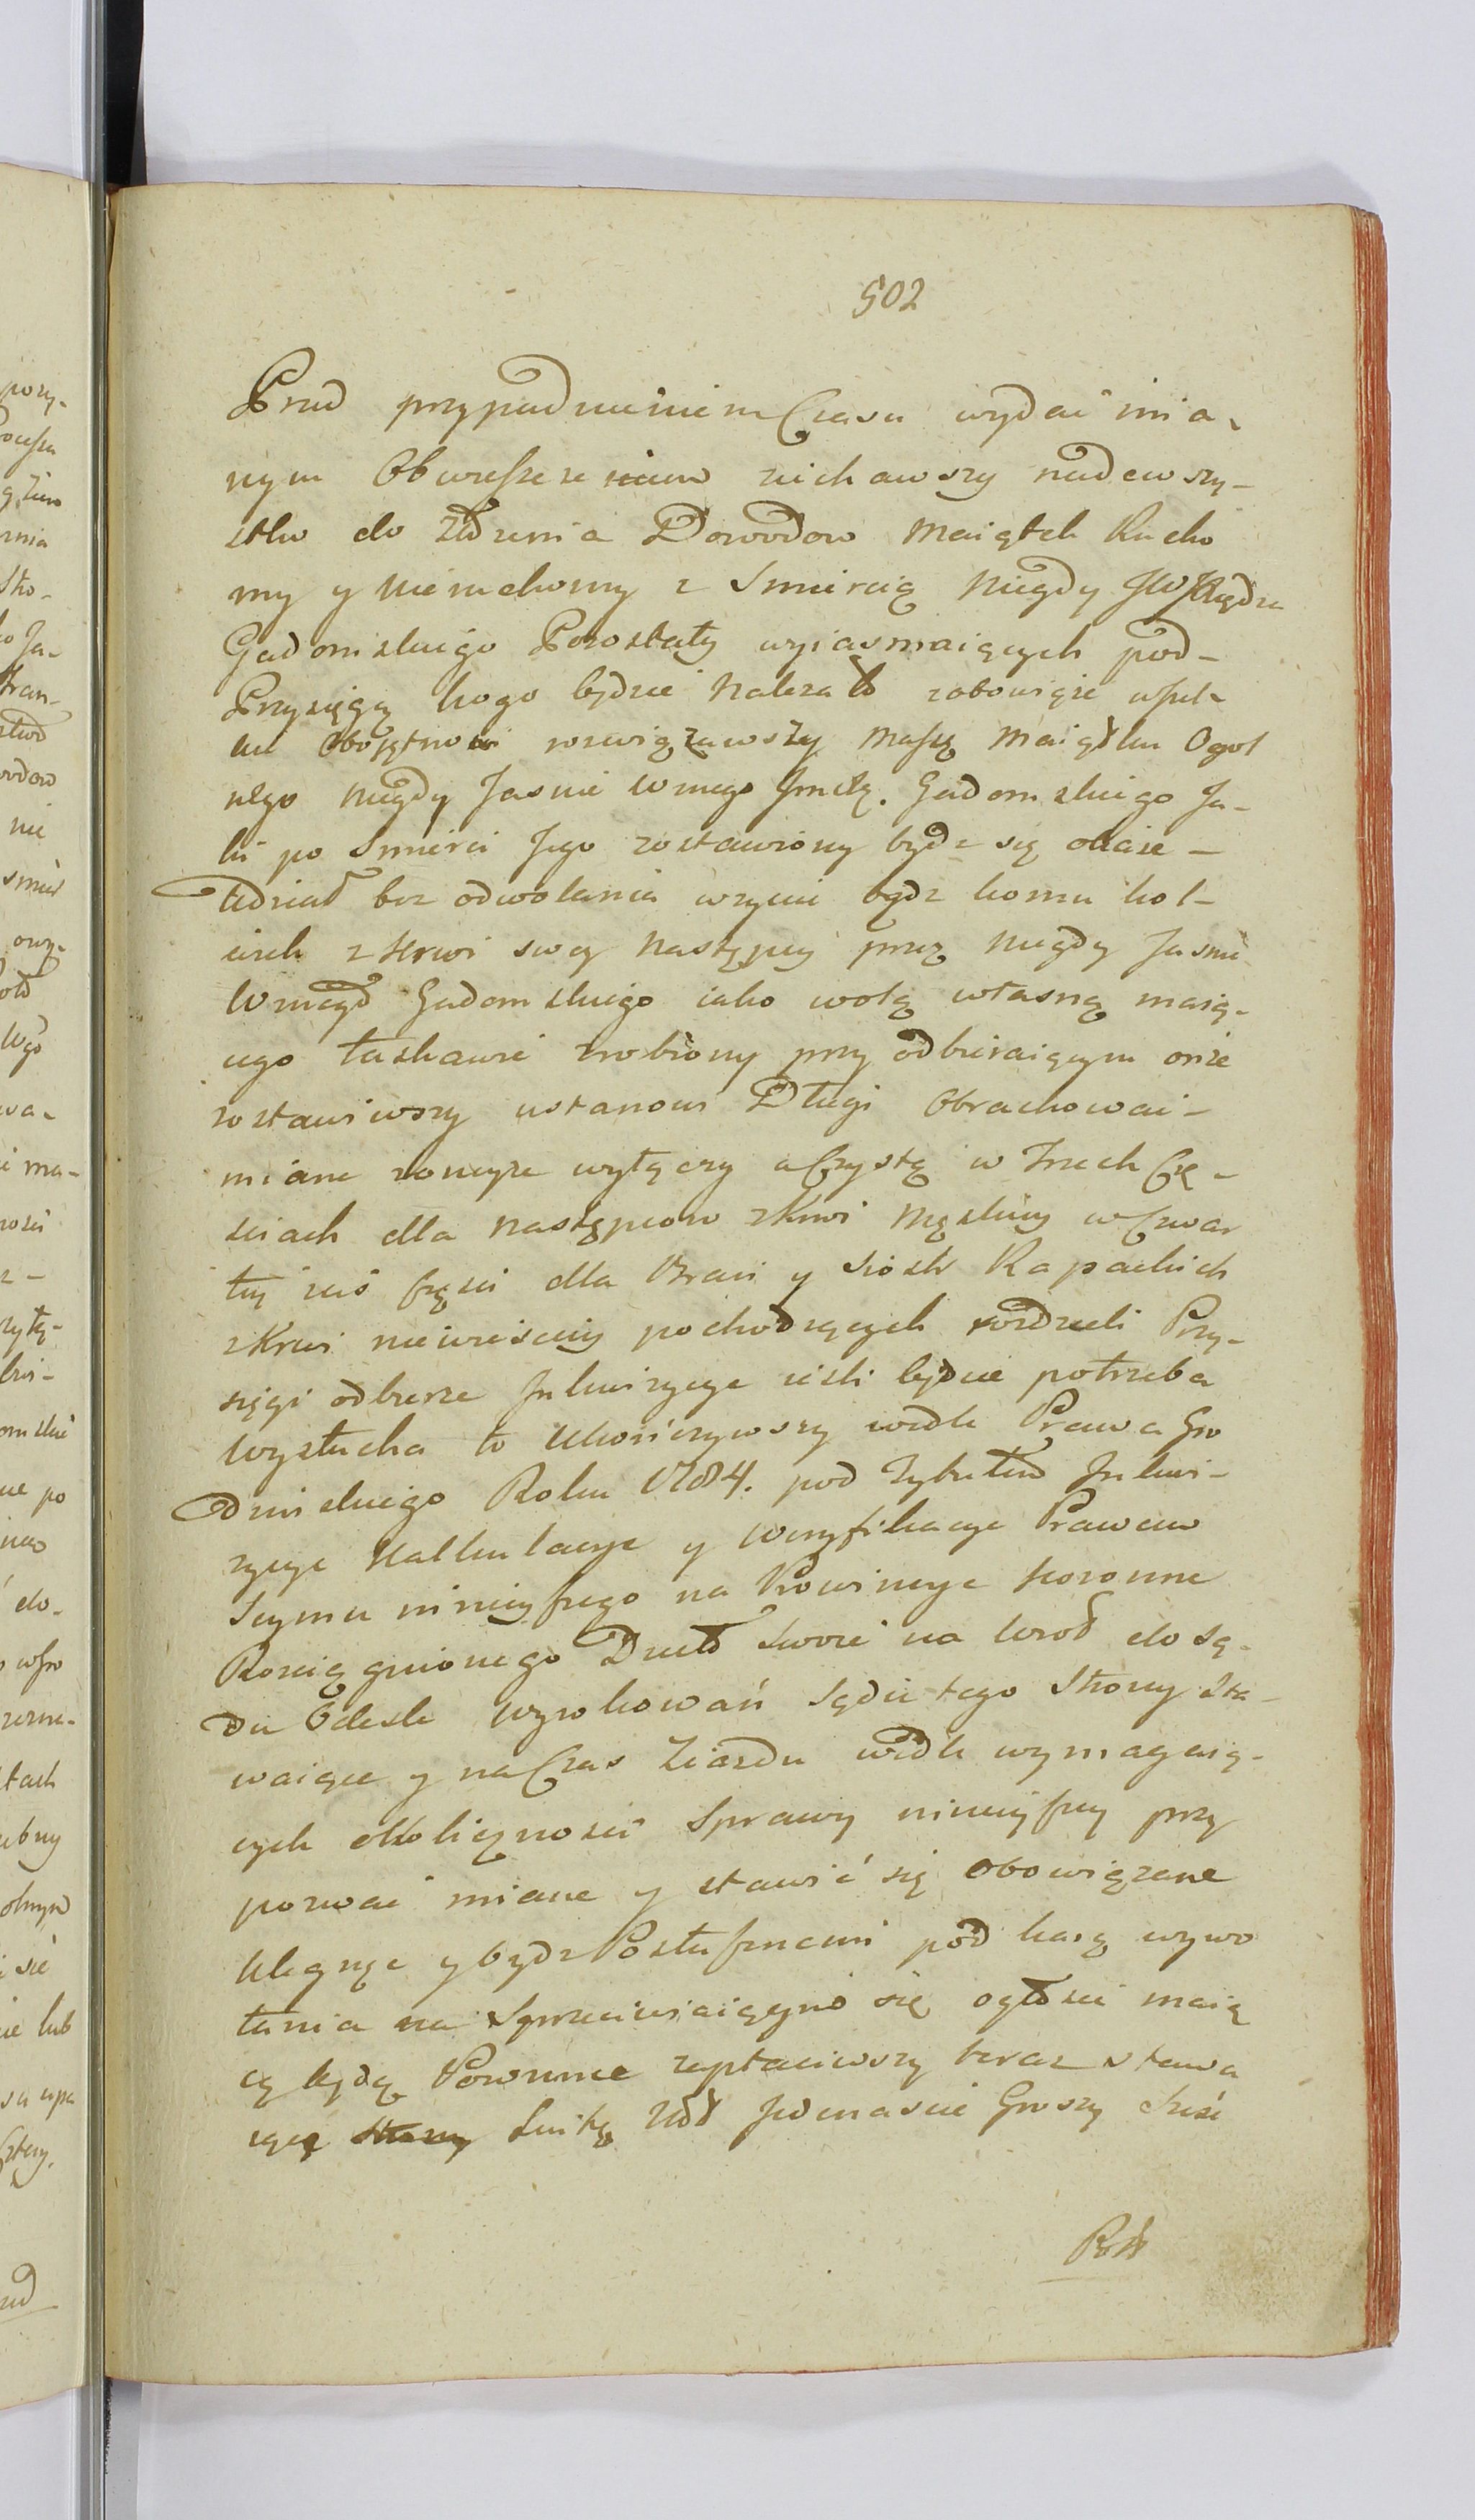 502
Przed przypadnieniem Czasu wydać mia-
nym Obwieszczeniem ziechawszy nadewszy-
stko do złożenia Dowodow Maiątek Rucho
my y Nieruchomy z Smiercią Niegdy JW Xiędza
Gadomskiego Pozostały wyiasniaiących pod-
Przysięgą kogo będzie Należało zobowiąże wszel-
kie Obojętnosci rozwiązawszy Massę Maiątku Ogol
nego Niegdy Jasnie Wnego Gadomskiego Ja-
ki po Smierci Jego zostawiony bydz się okaże -
Udział bez odwołania wrzynie bądz komu kol-
wiek z Krwi swey Następcy przez Niegdy Jasnie
Wnego Gadomskiego iako wolą własną maią-
cego łaskawie zrobiony przy odbieraiącym onże
zostawiwszy ustanowi Długi Obrachowai-
miane zoneyże wyłączy a Czystą w Trzech Czę-
sciach dla Następcow z Krwi Męskiey w Czwar
tey zaś Częsci dla Braci y Siostr Rapackich
z Krwi niewiesciey pochodzących rozdzieli Przy-
sięgi odbierze Inkwizycye iesli będzie potrzeba
Wysłucha to Ukończywszy wedle Prawa Gro
dzieńskiego Roku 1784. pod Tytułem Inkwi-
zycye Kalkulacye y Weryfikacye Prawem
Seymu ninieyszego na Prowincye Koronne
Rosciągnionego Dzieło swoie na wrot do Są-
du Odesle Wyrokowań Sądu tego Strony Sta-
waiące y na Czas Ziazdu wedle wymagaią-
cych okolicznosci Sprawy ninieyszey przy
pozwać miane y stawić się obowiązane
Ulegnąc y bydz Posłusznemi pod karą wywo
łania na Sprzeciwiaiącym się ogłosić maią
cą będą Powinne zapłaciwszy teraz stawa
iącey Jedenascie Groszy Szesć